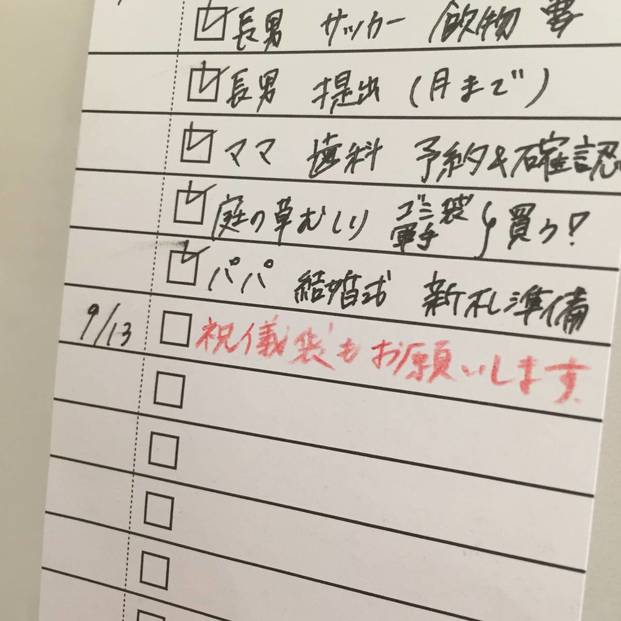 長男 サッカー 飲物 要
長男 提出 (月まで)
ママ 歯科 予約&確認
庭の草むしり ゴミ袋 軍手 買う?
パパ 結婚式 新札準備
9/13 祝儀袋もお願いします